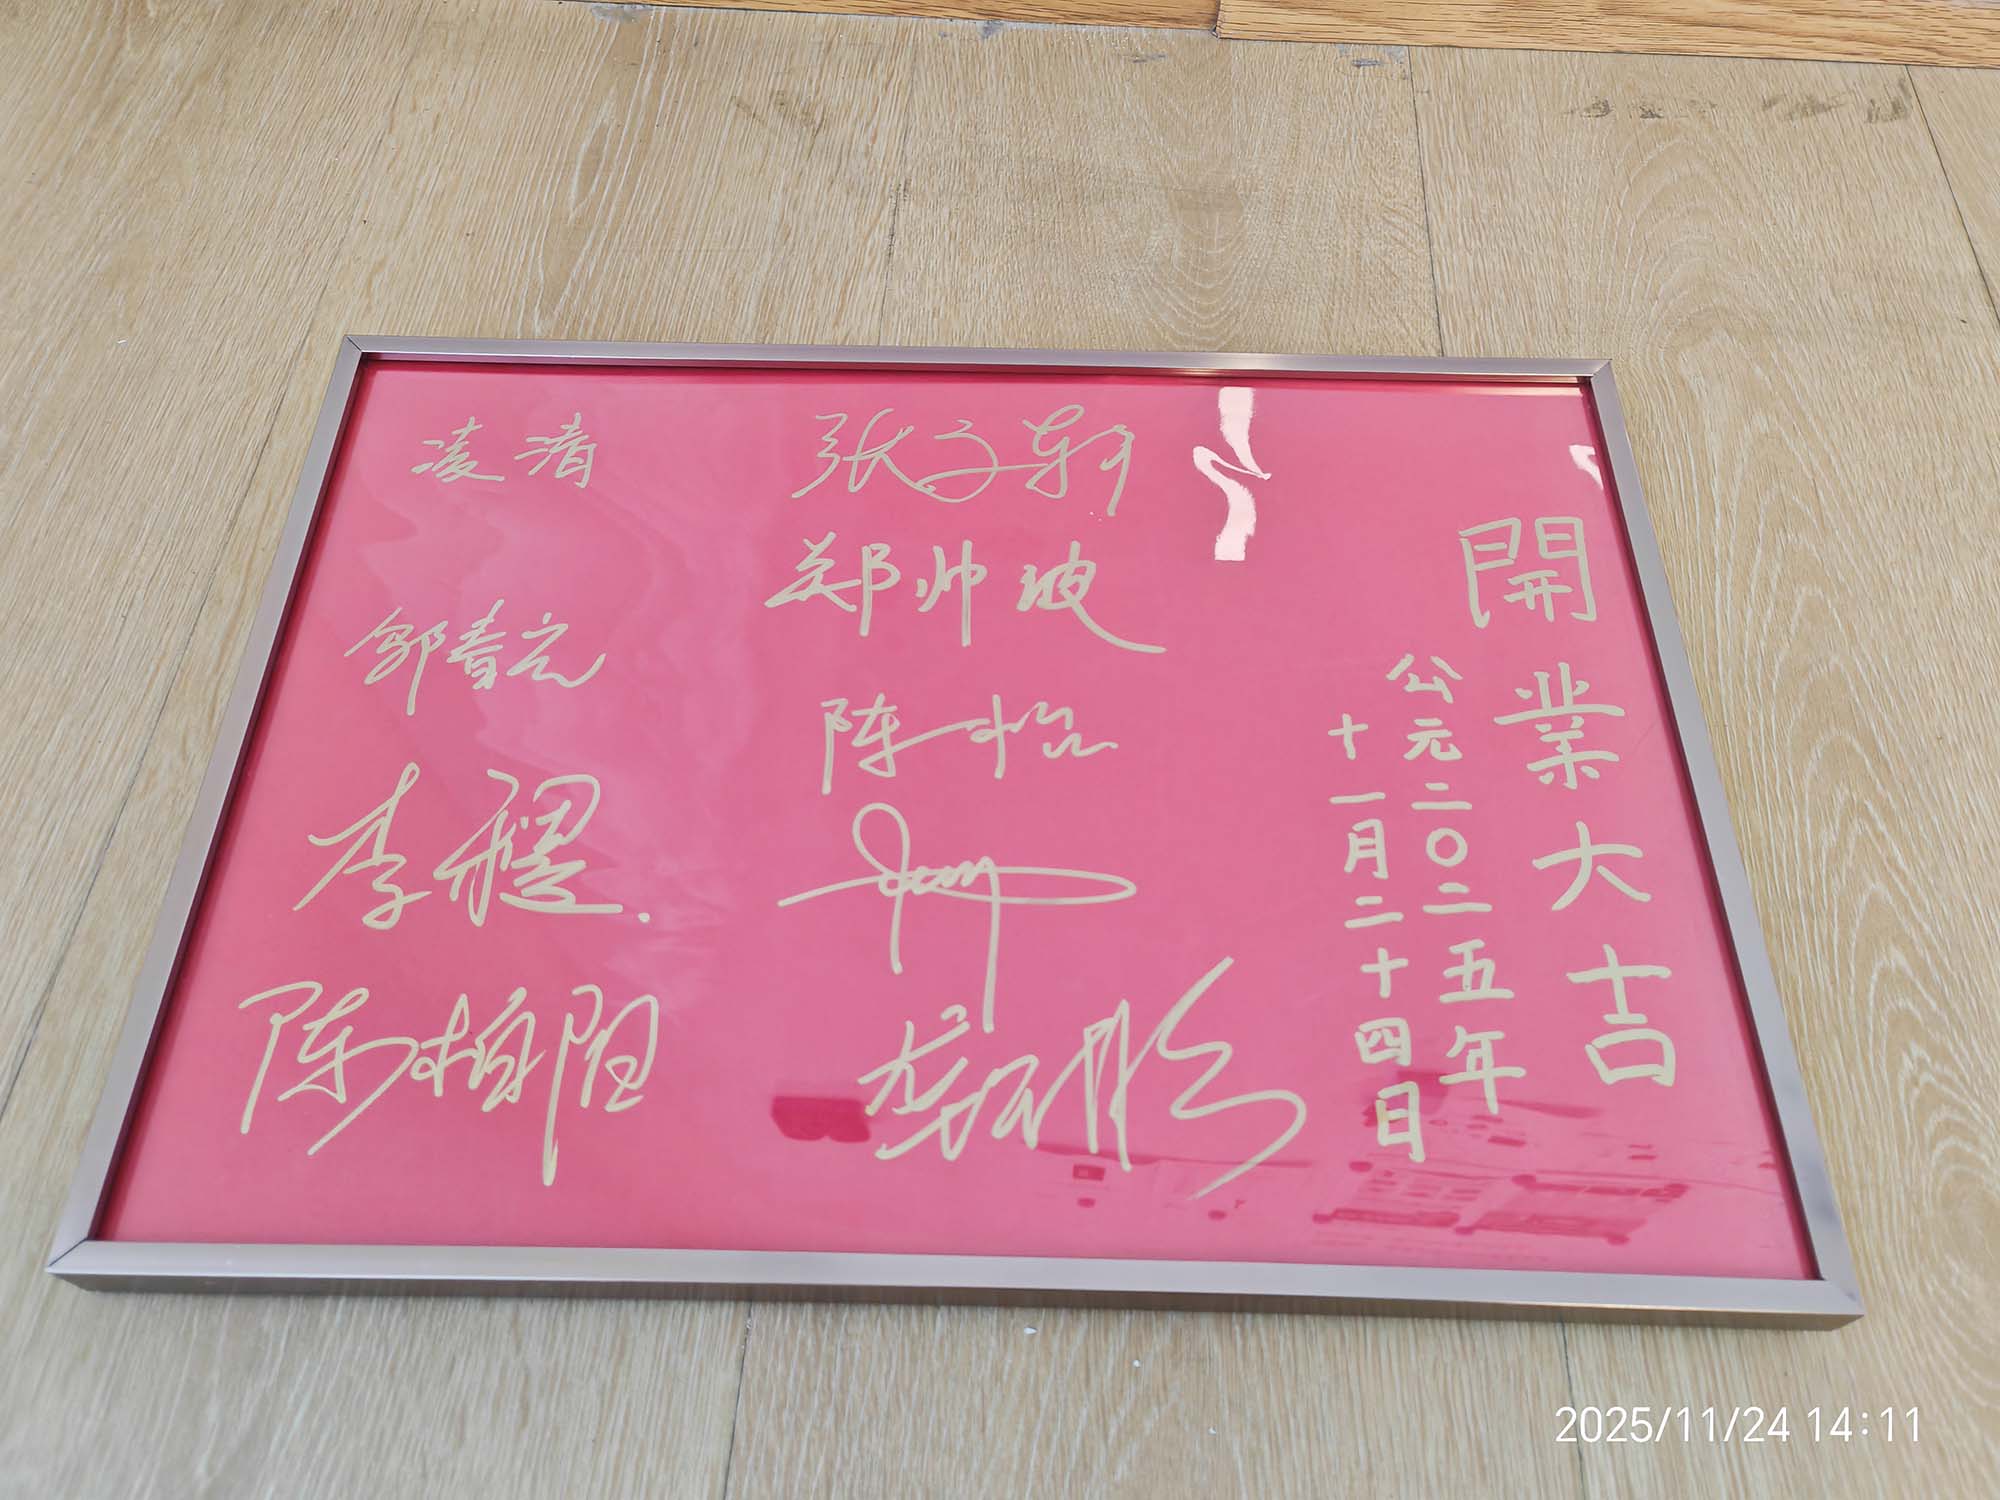 開業大吉
公元二〇二五年
十一月二十四日
张子轩
郑帅波
陈怡
凌清
邹春元
李稷.
陈柏阳
2025/11/24 14:11